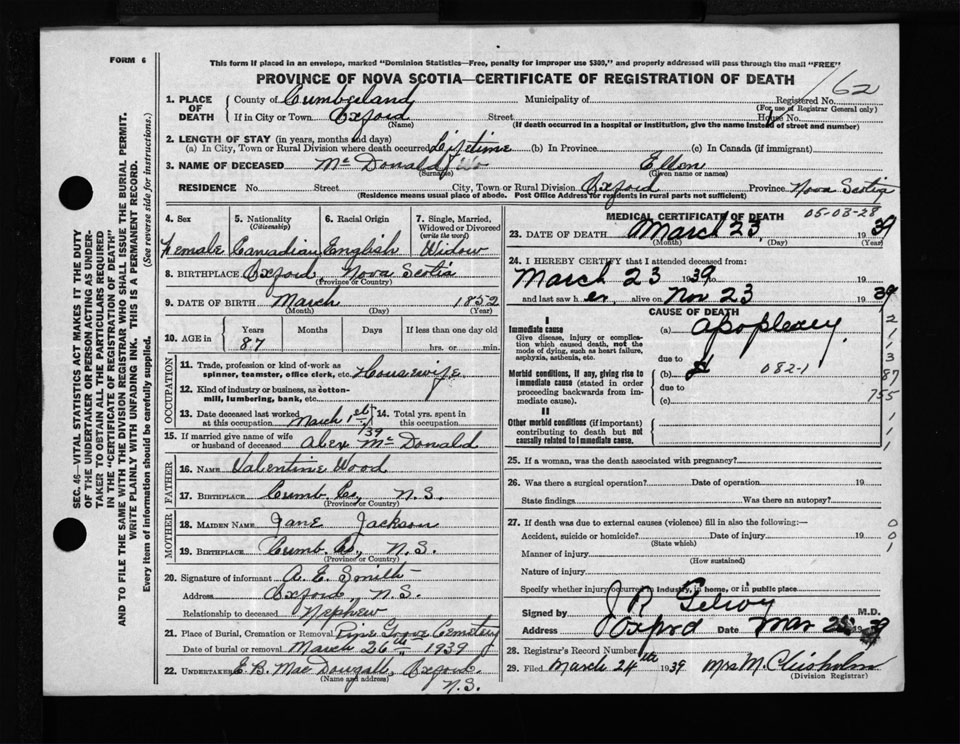 FORM 6
This form if placed in an envelope, marked "Dominion Statistics—Free, penalty for improper use $300," and properly addressed will pass through the mail "FREE"
PROVINCE OF NOVA SCOTIA—CERTIFICATE OF REGISTRATION OF DEATH
162
SEC. 46—VITAL STATISTICS ACT MAKES IT THE DUTY
OF THE UNDERTAKER OR PERSON ACTING AS UNDER-
TAKER TO OBTAIN ALL THE PARTICULARS REQUIRED
IN THE "CERTIFICATE OF REGISTRATION OF DEATH"
AND TO FILE THE SAME WITH THE DIVISION REGISTRAR WHO SHALL ISSUE THE BURIAL PERMIT.
WRITE PLAINLY WITH UNFADING INK. THIS IS A PERMANENT RECORD.
Every item of information should be carefully supplied. (See reverse side for instructions.)
1. PLACE OF DEATH County of Cumberland Municipality of Registered No.
(For use of Registrar General only)
If in City or Town Oxford Street House No.
(Name) (If death occurred in a hospital or institution, give the name instead of street and number)
2. LENGTH OF STAY (in years, months and days)
(a) In City, Town or Rural Division where death occurred Lifetime (b) In Province (c) In Canada (if immigrant)
3. NAME OF DECEASED McDonald Ellen
(Surname) (Given name or names)
RESIDENCE No. Street City, Town or Rural Division Oxford Province Nova Scotia
(Residence means usual place of abode. Post Office Address for residents in rural parts not sufficient)
4. Sex 5. Nationality (Citizenship) 6. Racial Origin 7. Single, Married, Widowed or Divorced (write the word)
Female Canadian English Widow
8. BIRTHPLACE Oxford, Nova Scotia
(Province or Country)
9. DATE OF BIRTH March 1852
(Month) (Day) (Year)
10. AGE in Years Months Days If less than one day old
87 hrs. or min.
OCCUPATION
11. Trade, profession or kind of work as spinner, teamster, office clerk, etc. Housewife
12. Kind of industry or business, as cotton-mill, lumbering, bank, etc.
13. Date deceased last worked at this occupation March 1st/39 14. Total yrs. spent in this occupation
15. If married give name of wife or husband of deceased Alex McDonald
FATHER
16. NAME Valentine Wood
17. BIRTHPLACE Cumb. Co, N.S.
MOTHER
18. MAIDEN NAME Jane Jackson
19. BIRTHPLACE Cumb. Co., N.S.
(Province or Country)
20. Signature of informant A. E. Smith
Address Oxford, N.S.
Relationship to deceased Nephew
21. Place of Burial, Cremation or Removal Pine Grove Cemetery
Date of burial or removal March 26th 1939
22. UNDERTAKER E. B. MacDougall, Oxford.
(Name and address) N.S.
MEDICAL CERTIFICATE OF DEATH
05-03-28
23. DATE OF DEATH March 23, 1939
(Month) (Day) (Year)
24. I HEREBY CERTIFY that I attended deceased from:
March 23 1939 to 19
and last saw her alive on Nov 23 1939
CAUSE OF DEATH
I
Immediate cause (a) apoplexy.
Give disease, injury or complica-
tion which caused death, not the
mode of dying, such as heart failure,
asphyxia, asthenia, etc. due to
Morbid conditions, if any, giving rise to (b) 082-1
immediate cause (stated in order due to
proceeding backwards from im-
mediate cause). (c)
II
Other morbid conditions (if important)
contributing to death but not
causally related to immediate cause.
2
1
3
87
755
1
1
1
25. If a woman, was the death associated with pregnancy?
26. Was there a surgical operation? Date of operation 19
State findings Was there an autopsy?
27. If death was due to external causes (violence) fill in also the following:—
Accident, suicide or homicide? Date of injury 19
(State which)
Manner of injury
(How sustained)
Nature of injury
Specify whether injury occurred in industry, in home, or in public place
0
0
1
Signed by J R M.D.
Address Oxford Date Mar 1939
28. Registrar's Record Number
29. Filed March 24th 1939 Mrs M. Chisholm
(Division Registrar)